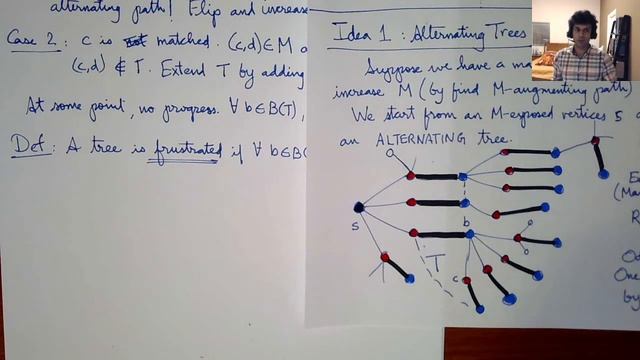 alternating path! Flip and increase
Case 2: c is matched. (c,d) ∈ M
(c,d) ∉ T. Extend T by adding
At some point, no progress. ∀ b∈B(T),
Def: A tree is frustrated if ∀ b∈B(
Idea 1: Alternating Trees
Suppose we have a ma
increase M (by find M-augmenting path)
We start from an M-exposed vertices s
an ALTERNATING tree.
s
b
T
c
(Ma
R
One
by